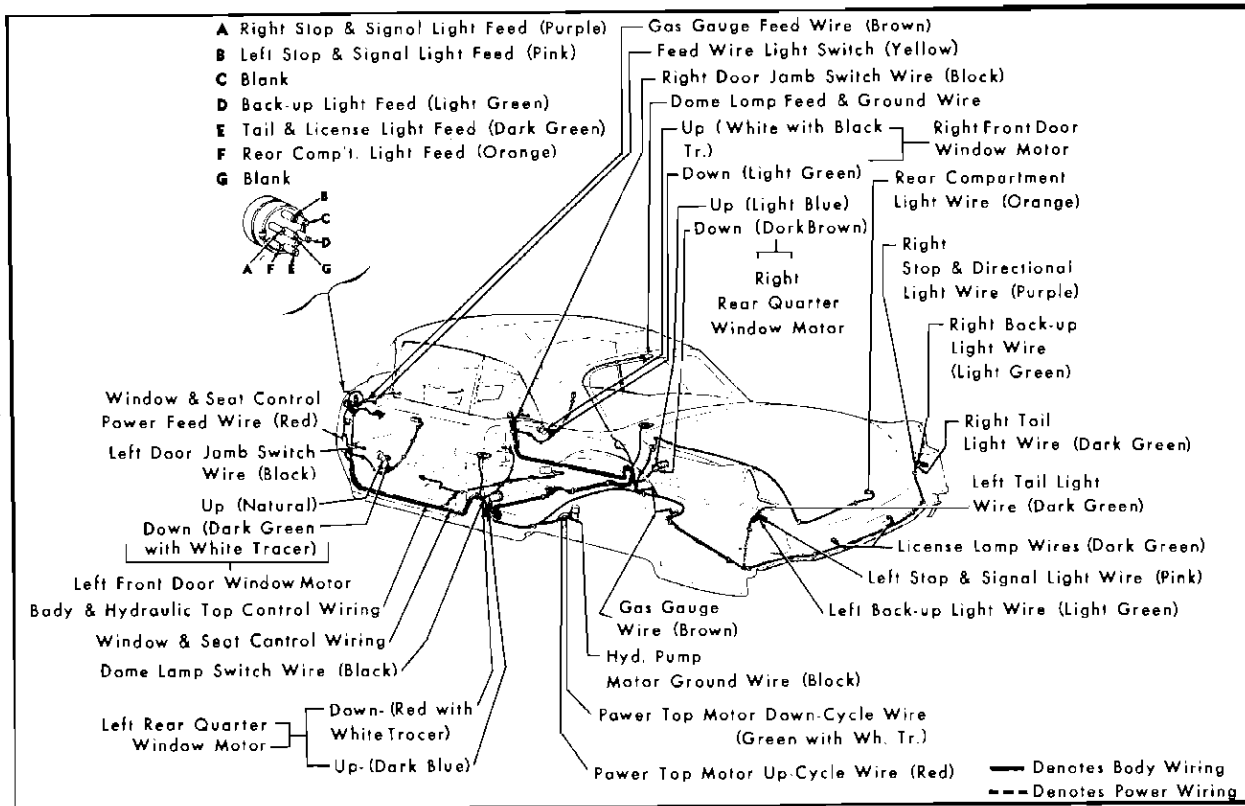 A Right Stop & Signol Light Feed (Purple)
B Left Stop & Signal Light Feed (Pink)
C Blank
D Back-up Light Feed (Light Green)
E Tail & License Light Feed (Dark Green)
F Rear Comp't. Light Feed (Orange)
G Blank
B
C
D
G
E
F
A
Gas Gauge Feed Wire (Brown)
Feed Wire Light Switch (Yellow)
Right Door Jamb Switch Wire (Block)
Dome Lamp Feed & Ground Wire
Up (White with Black
Tr.)
Down (Light Green)
Right Front Door
Window Motor
Up (Light Blue)
Down (Dork Brown)
Right
Rear Quarter
Window Motor
Rear Compartment
Light Wire (Orange)
Right
Stop & Directional
Light Wire (Purple)
Right Back-up
Light Wire
(Light Green)
Right Tail
Light Wire (Dark Green)
Left Tail Light
Wire (Dark Green)
License Lamp Wires (Dark Green)
Left Stop & Signal Light Wire (Pink)
Left Back-up Light Wire (Light Green)
Window & Seat Control
Power Feed Wire (Red)
Left Door Jamb Switch
Wire (Black)
Up (Natural)
Down (Dark Green
with White Tracer)
Left Front Door Window Motor
Body & Hydraulic Top Control Wiring
Window & Seat Cantrol Wiring
Dame Lamp Switch Wire (Black)
Left Rear Quarter
Window Motor
Down- (Red with
White Trocer)
Up- (Dark Blue)
Gas Gauge
Wire (Brown)
Hyd. Pump
Motor Ground Wire (Block)
Pawer Top Motor Dawn-Cycle Wire
(Green with Wh. Tr.)
Pawer Top Motor Up-Cycle Wire (Red)
Denotes Body Wiring
Denotes Power Wiring